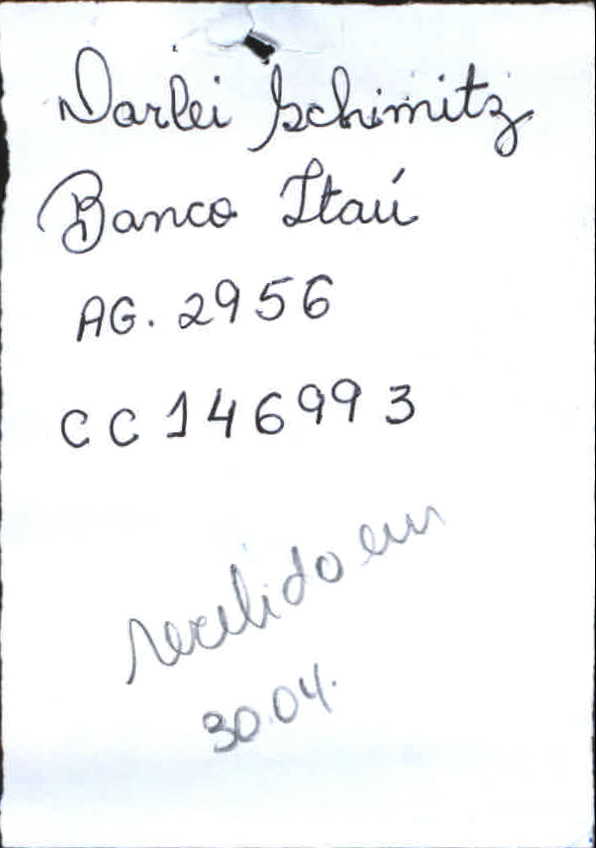 Darlei Schimitz
Banco Itaú
AG. 2956
CC 146993
recebido em
30.04.